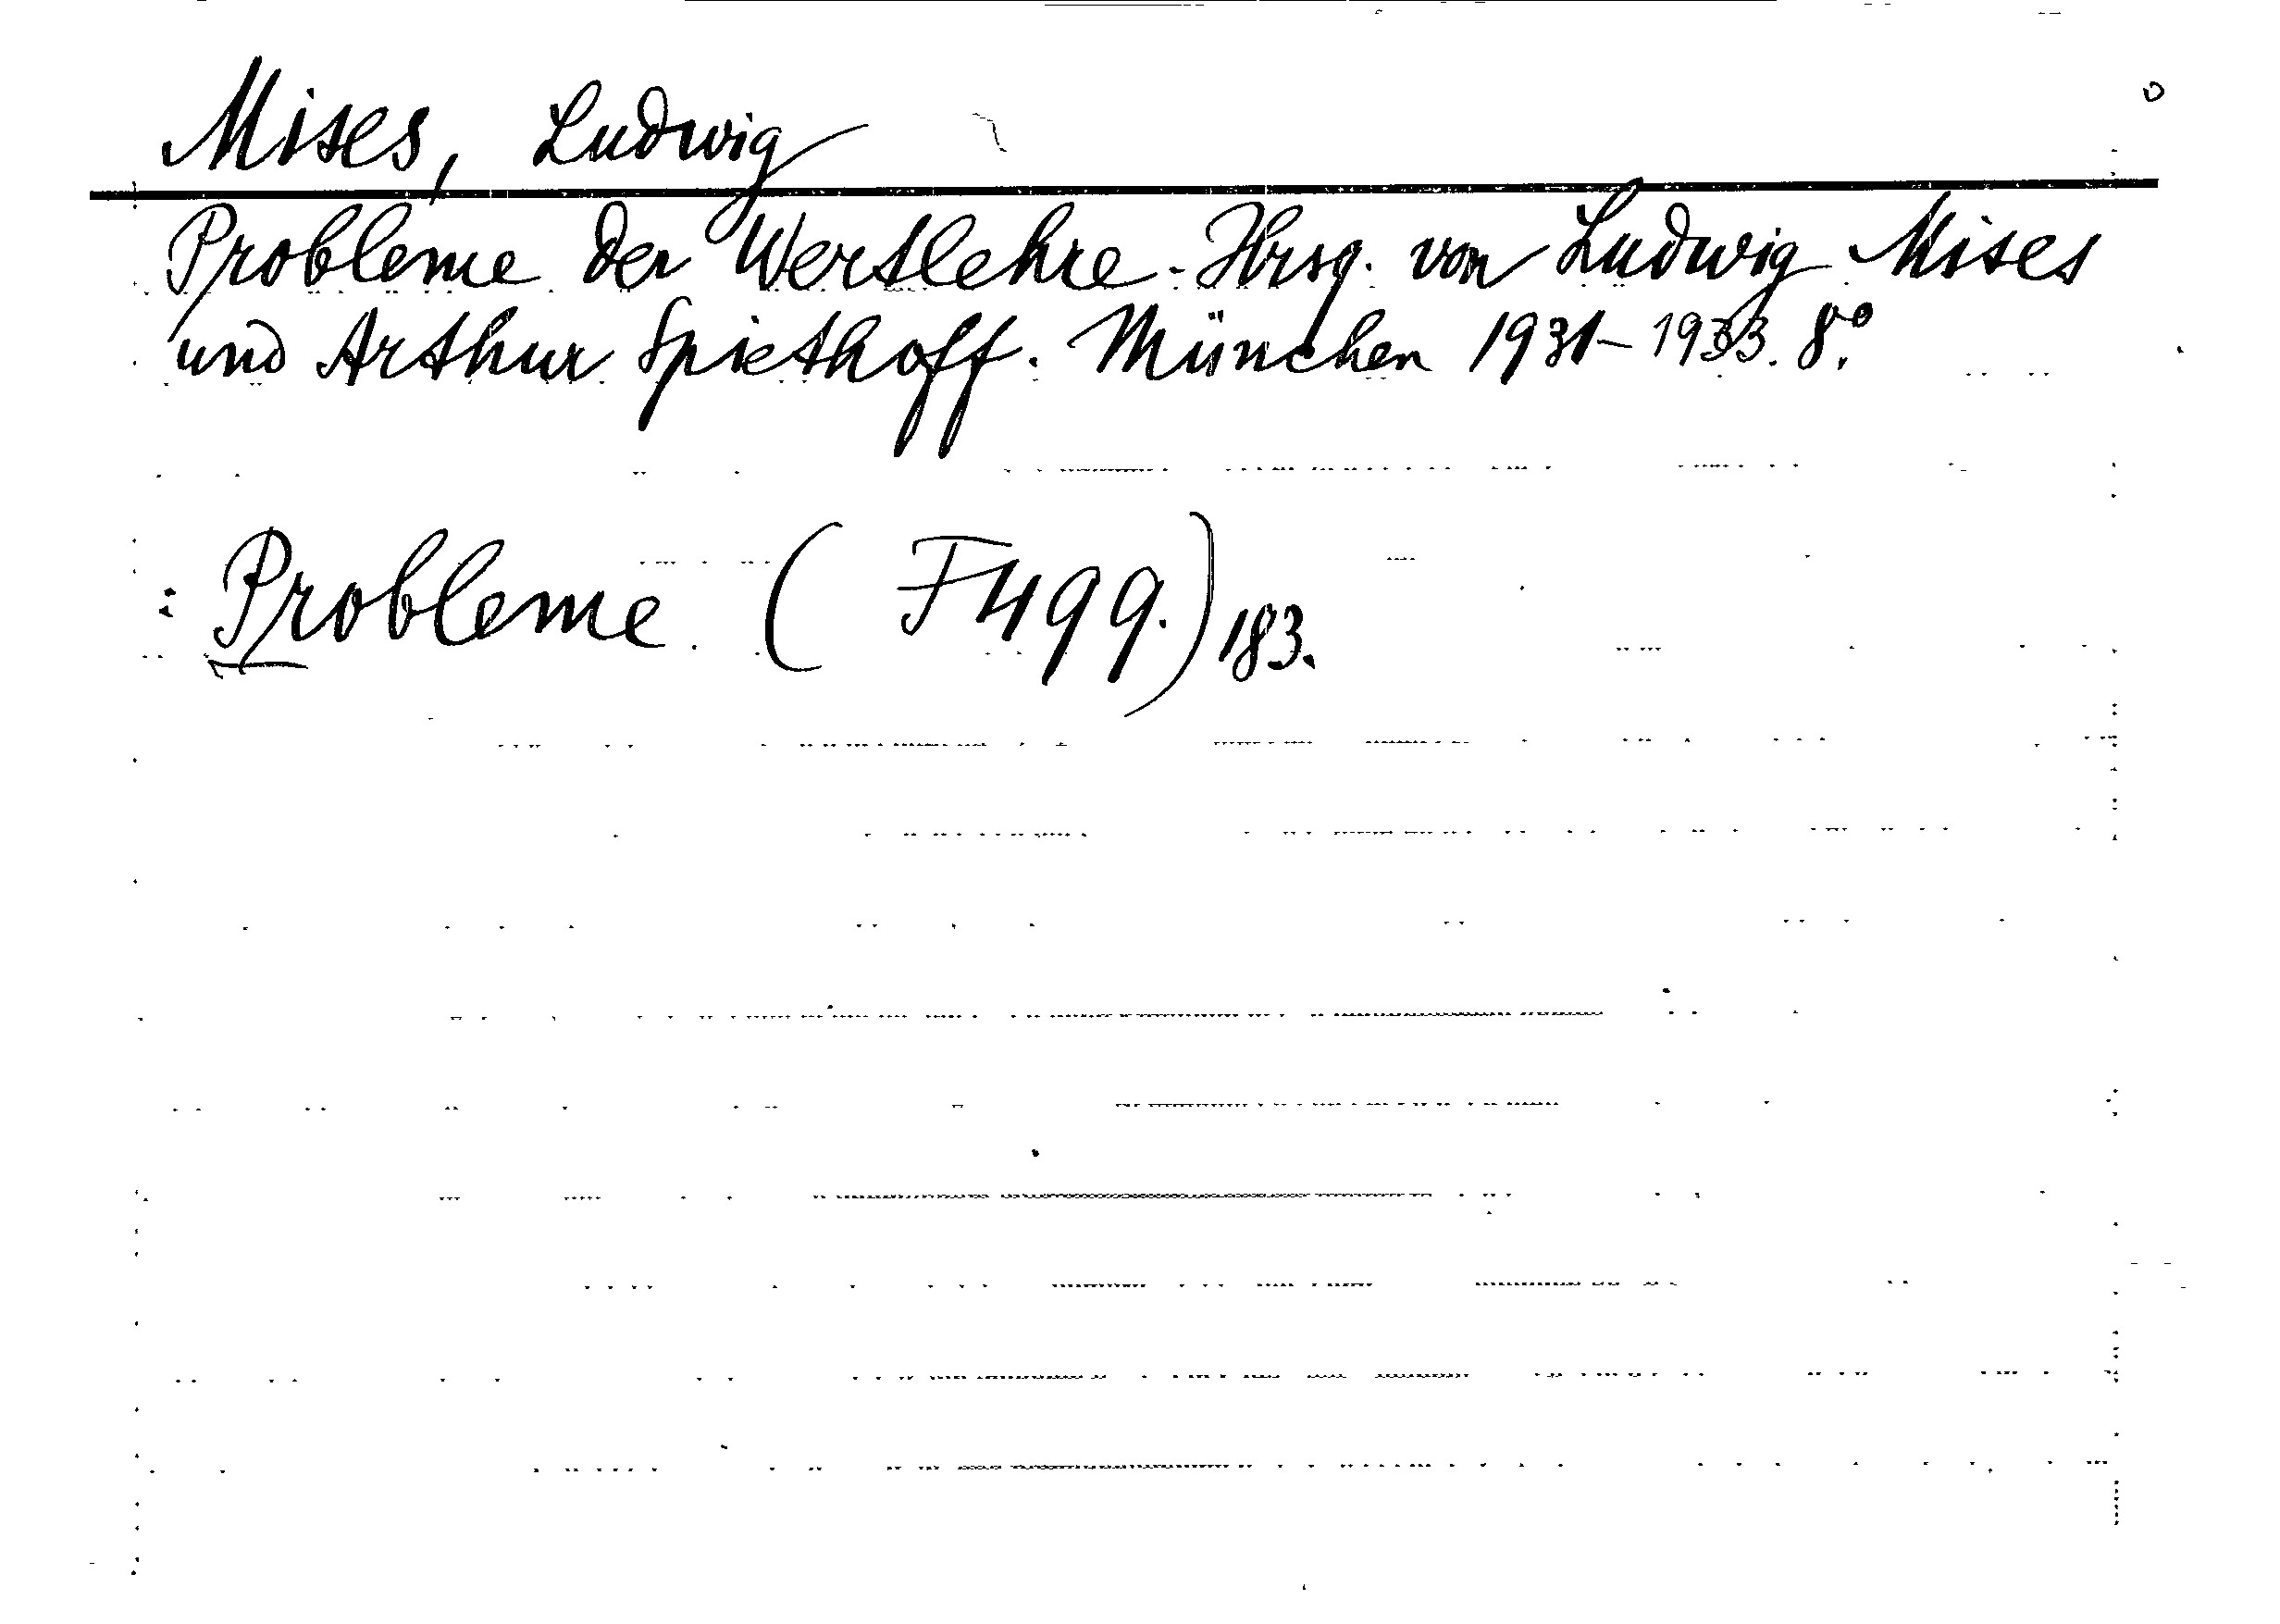 Mises, Ludwig
Probleme der Wertlehre. Hrsg. von Ludwig Mises
und Arthur Spiethoff. München 1931-1933. 8.°
: Probleme. (F499.) 183.